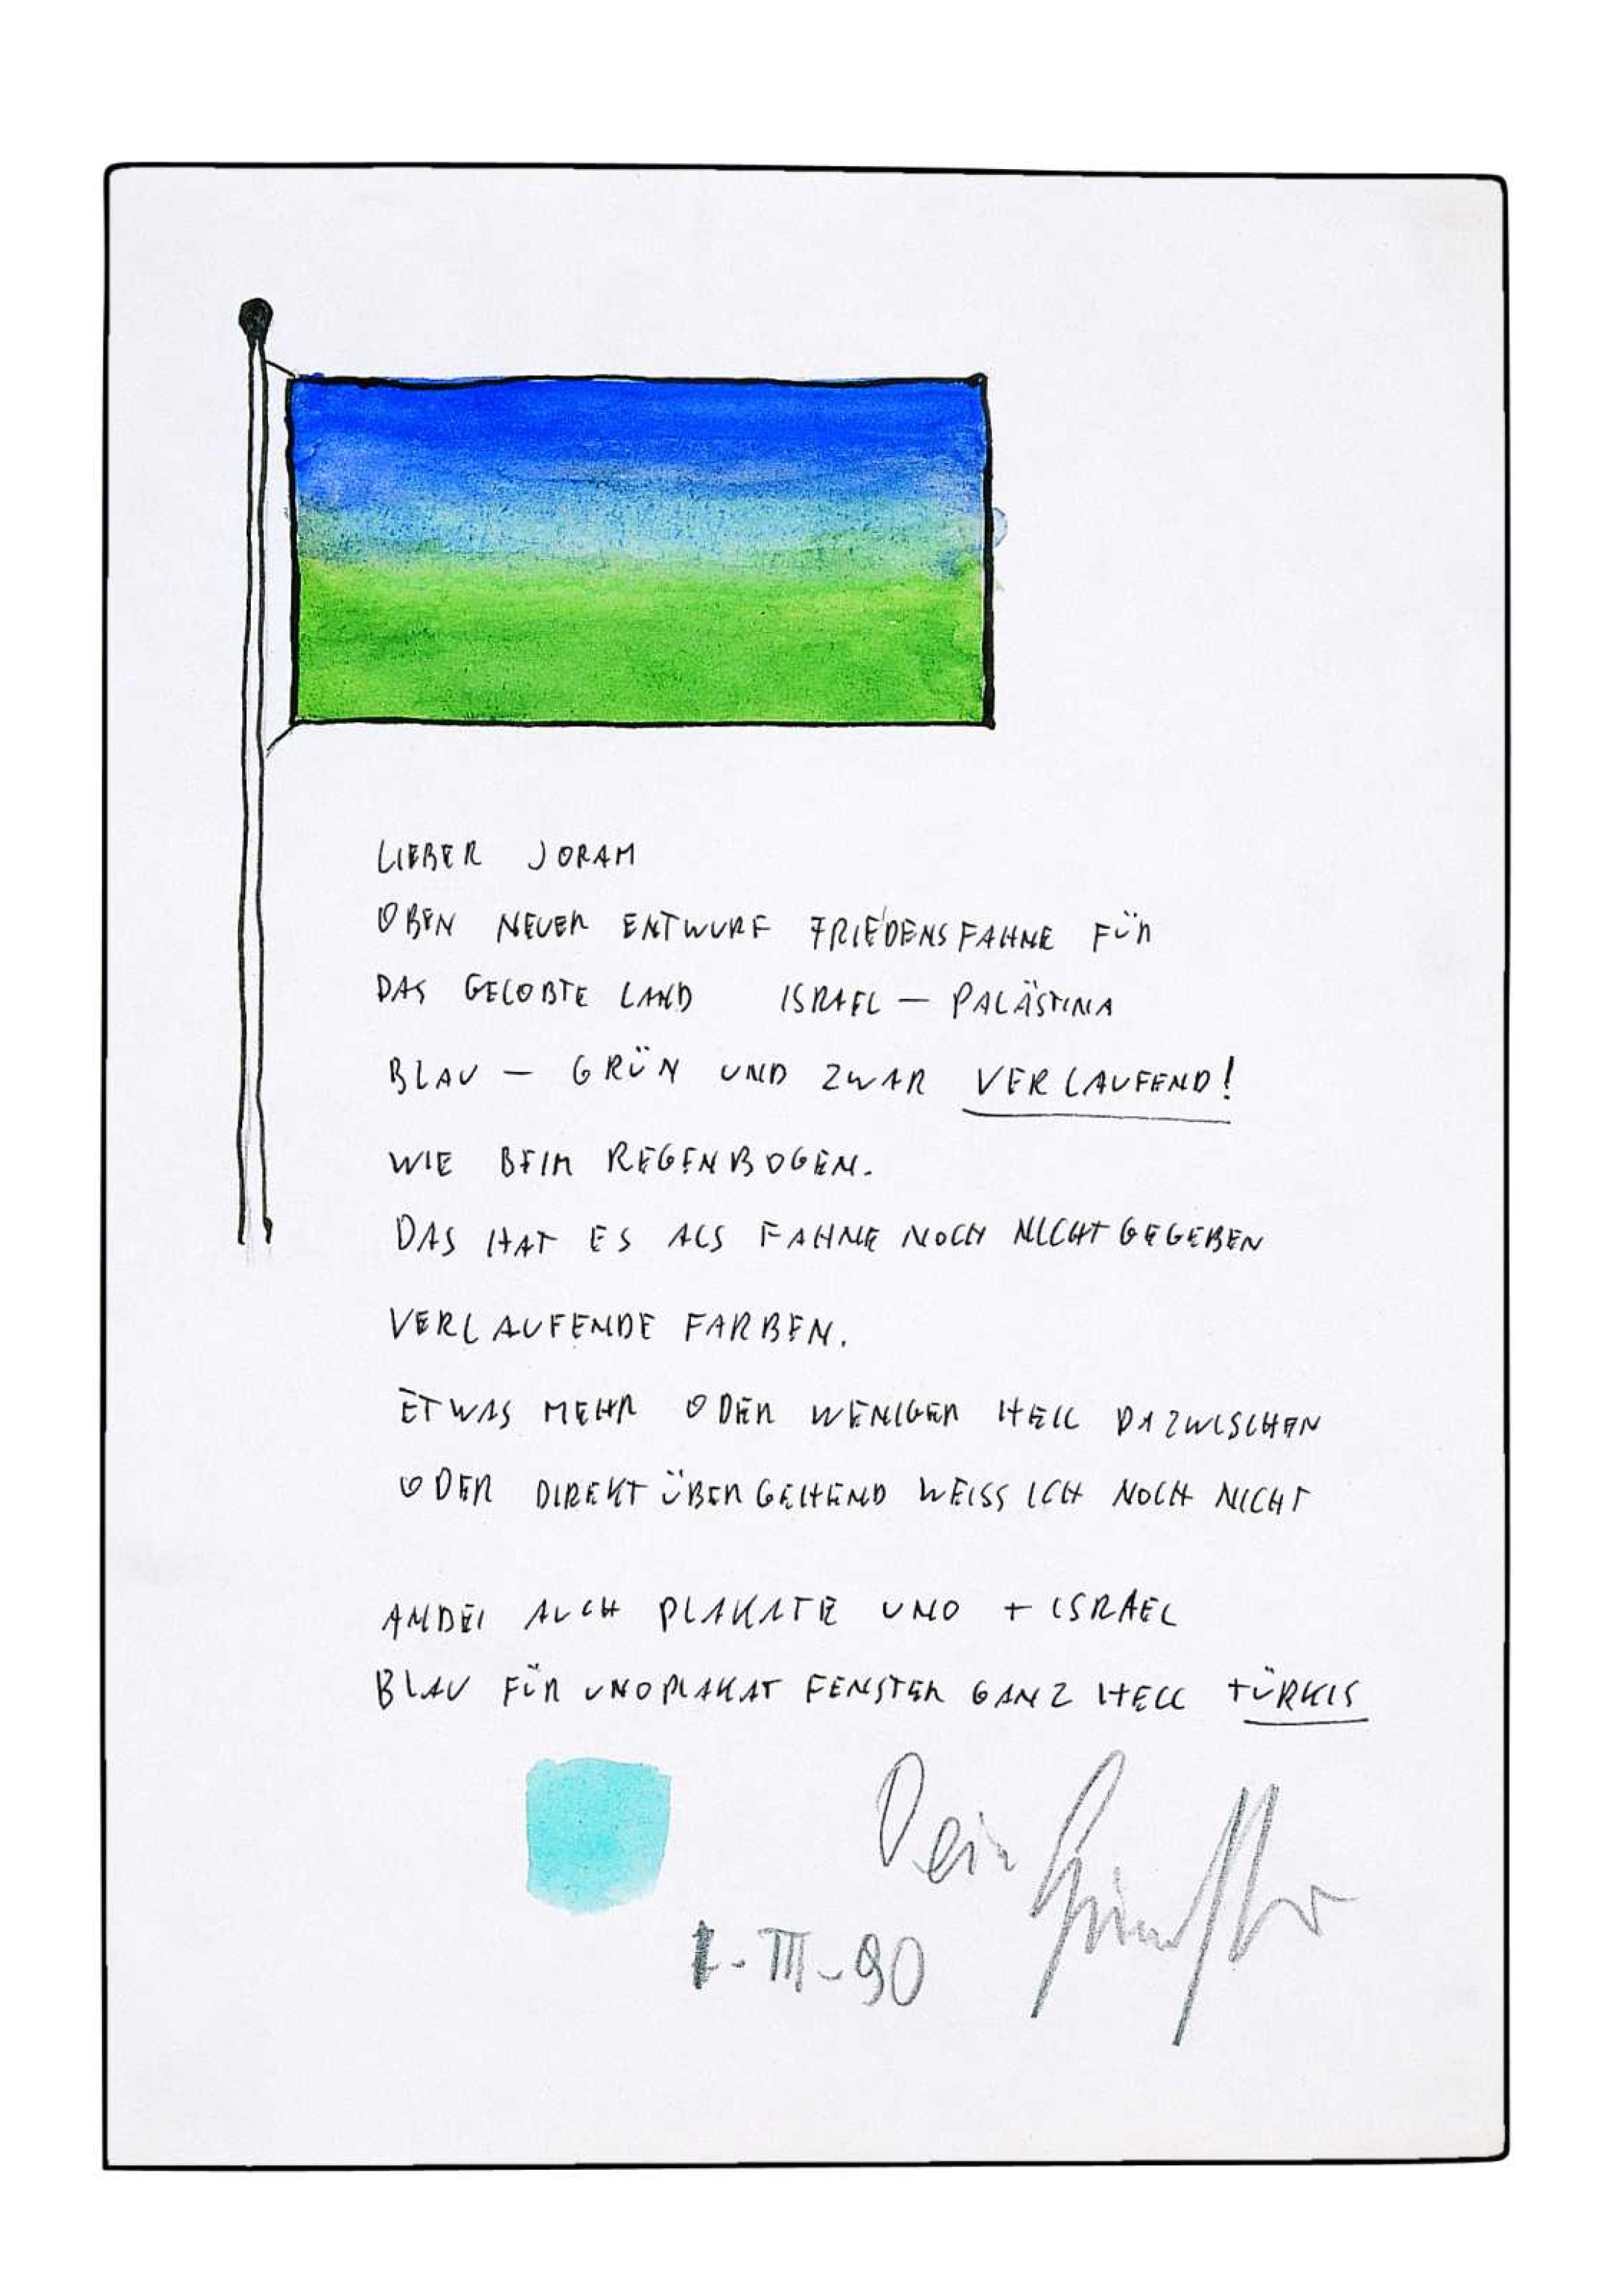 LIEBER JORAM
OBEN NEUER ENTWURF FRIEDENSFAHNE FÜR
DAS GELOBTE LAND ISRAEL – PALÄSTINA
BLAU – GRÜN UND ZWAR VERLAUFEND!
WIE BEIM REGENBOGEN.
DAS HAT ES ALS FAHNE NOCH NICHT GEGEBEN
VERLAUFENDE FARBEN.
ETWAS MEHR ODER WENIGER HELL DAZWISCHEN
ODER DIREKT ÜBERGEHEND WEISS ICH NOCH NICHT
ANBEI AUCH PLAKATE UNO + ISRAEL
BLAU FÜR UNOPLAKAT FENSTER GANZ HELL TÜRKIS
Dein
1-III-90